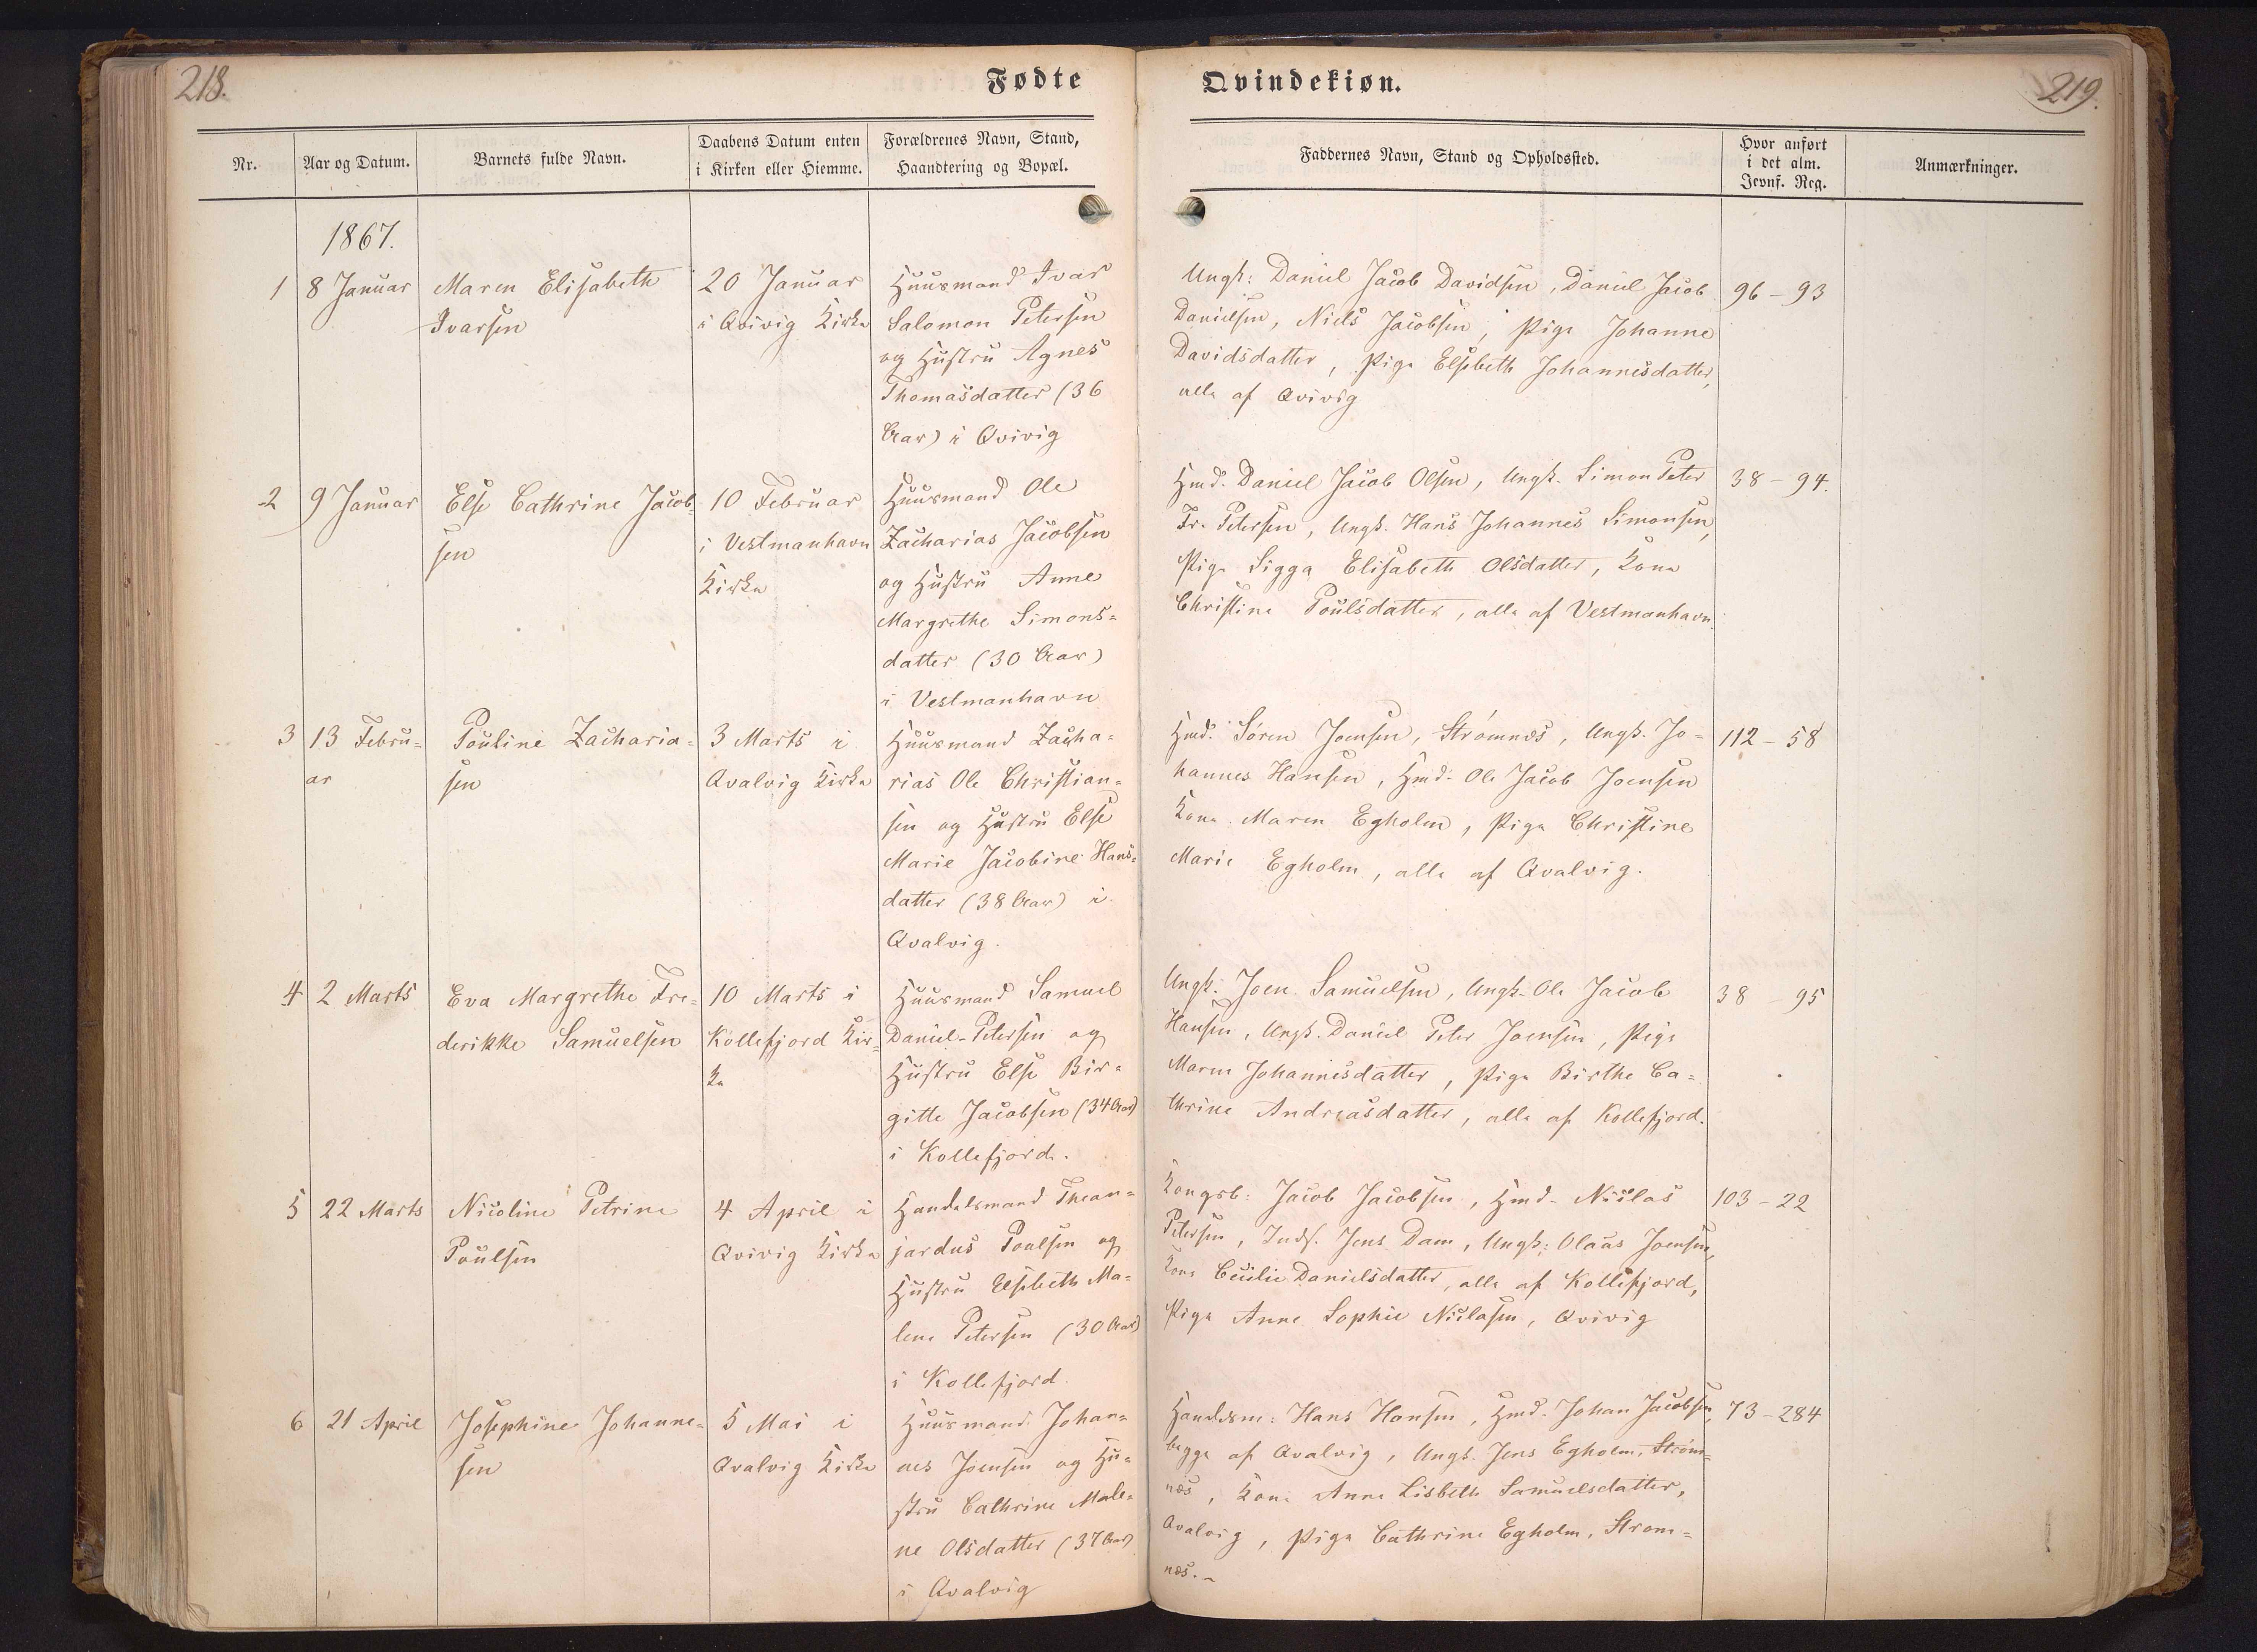 218.
Fødte
Nr.
Aar og Datum.
Barnets fulde Navn.
Daabens Datum enten
i Kirken eller Hiemme.
Forældrenes Navn, Stand,
Haandtering og Bopæl.
1867.
1
8 Januar
Maren Elisabeth
Ivarsen
20 Januar
i Qvivig Kirke
Huusmand Ivar
Salomon Petersen
og Hustru Agnes
Thomasdatter (36
Aar) i Qvivig
2
9 Januar
Else Cathrine Jacob-
sen
10 Februar
i Vestmanhavn
Kirke
Huusmand Ole
Zacharias Jacobsen
og Hustru Anne
Margrethe Simons-
datter (30 Aar)
i Vestmanhavn
3
13 Febru-
ar
Pouline Zacharia-
sen
3 Marts i
Qvalvig Kirke
Huusmand Zacha-
rias Ole Christian-
sen og Hustru Else
Marie Jacobine Hans-
datter (38 Aar) i
Qvalvig.
4
2 Marts
Eva Margrethe Fre-
derikke Samuelsen
10 Marts i
Kollefjord Kir-
ke
Huusmand Samuel
Daniel Petersen og
Hustru Else Bir-
gitte Jacobsen (34 Aar)
i Kollefjord.
5
22 Marts
Nicoline Petrine
Poulsen
4 April i
Qvivig Kirke
Handelsmand Thean-
jardus Poulsen og
Hustru Elsebeth Ma-
lene Petersen (30 Aar)
i Kollefjord.
6
21 April
Josephine Johanne-
sen
5 Mai i
Qvalvig Kirke
Huusmand Johan-
nes Joensen og Hu-
stru Cathrine Male-
ne Olsdatter (37 Aar)
i Qvalvig
Qvindekiøn.
219.
Faddernes Navn, Stand og Opholdssted.
Hvor anført
i det alm.
Jevnf. Reg.
Anmærkninger.
Ungk: Daniel Jacob Davidsen, Daniel Jacob
Danielsen, Niels Jacobsen, Pige Johanne
Davidsdatter, Pige Elsebeth Johannesdatter,
alle af Qvivig
96 - 93
Hmd. Daniel Jacob Olsen, Ungk. Simon Peter
Fr. Petersen, Ungk. Hans Johannes Simonsen,
Pige Sigga Elisabeth Olsdatter, Kone
Christine Poulsdatter, alle af Vestmanhavn.
38 - 94.
Hmd. Søren Joensen, Strømnæs, Ungk. Jo-
hannes Hansen, Hmd. Ole Jacob Joensen
Kone Maren Egholm, Pige Christine
Marie Egholm, alle af Qvalvig.
112 - 58
Ungk. Joen Samuelsen, Ungk. Ole Jacob
Hansen, Ungk. Daniel Peter Joensen, Pige
Maren Johannesdatter, Pige Birthe Ca-
thrine Andreasdatter, alle af Kollefjord.
38 - 95
Kongsb: Jacob Jacobsen, Hmd. Niclas
Petersen, Inds. Jens Dam, Ungk: Olaus Joensen,
Kone Cecilie Danielsdatter, alle af Kollefjord,
Pige Anne Sophie Niclasen, Qvivig
103 - 22
Handelsm: Hans Hansen, Hmd. Johan Jacobsen,
begge af Qvalvig, Ungk. Jens Egholm, Strøm-
næs, Kone Anne Lisbeth Samuelsdatter,
Qvalvig, Pige Cathrine Egholm, Strøm-
næs.-
73 - 284